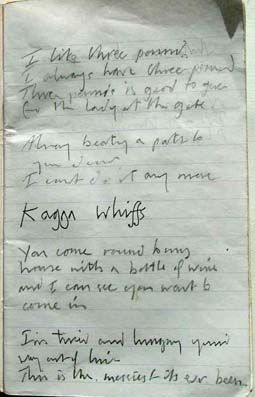 I like three pounds
I always have three pound
Three pounds is good to give
to the lady at the gate
Always beating a path to
your door
I cant do it any more
Kagga Whiffs
You come round to my
house with a bottle of wine
and I can see you want to
come in
I'm tired and hungry your
way out of line
This is the messiest its ever been